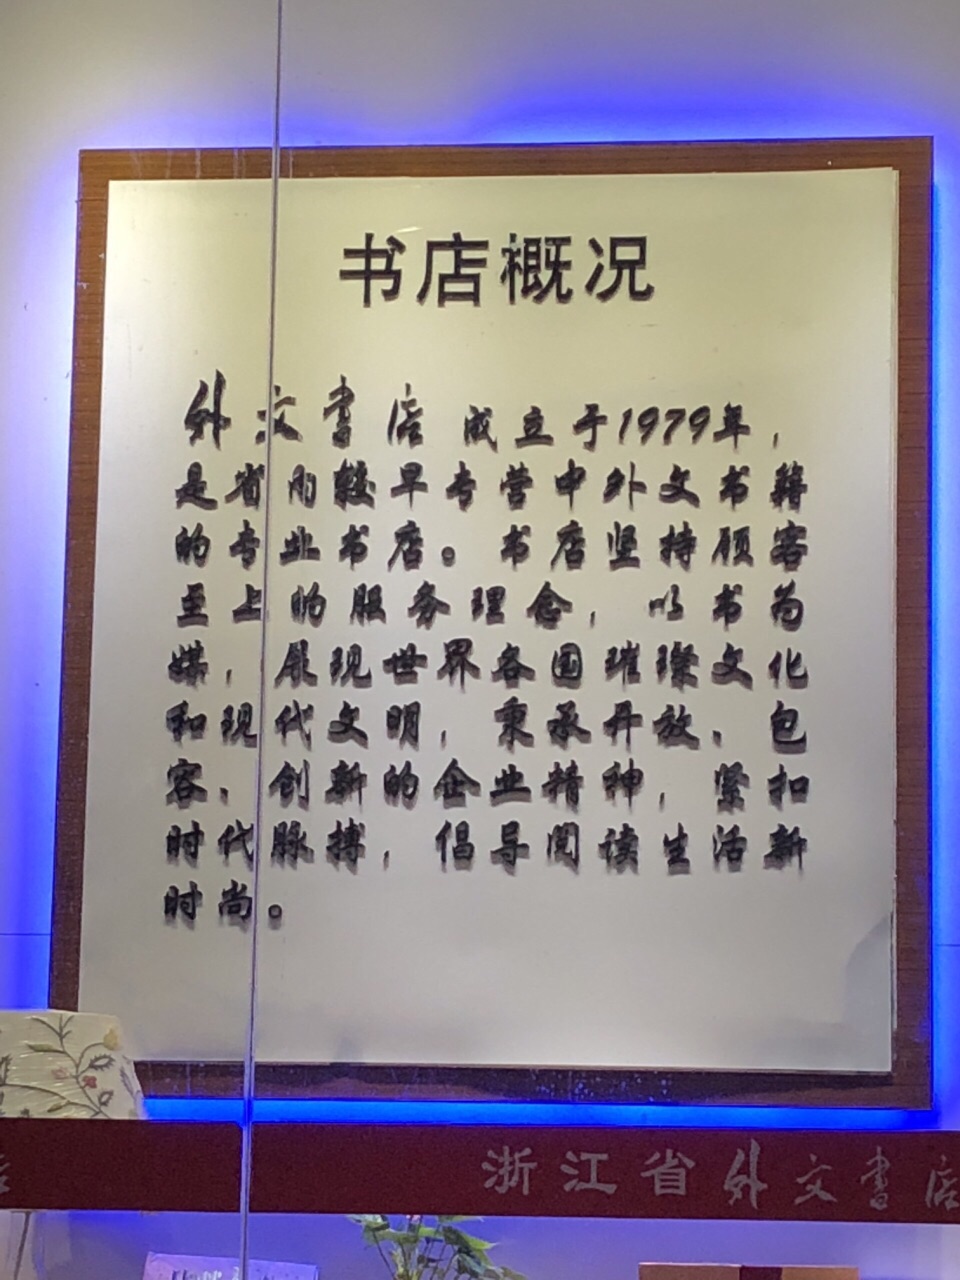 书店概况
外文書店成立于1979年，
是省内较早专营中外文书籍
的专业书店。书店坚持顾客
至上的服务理念，以书为
媒，展现世界各国璀璨文化
和现代文明，秉承开放、包
容、创新的企业精神，紧扣
时代脉搏，倡导阅读生活新
时尚。
浙江省外文書店